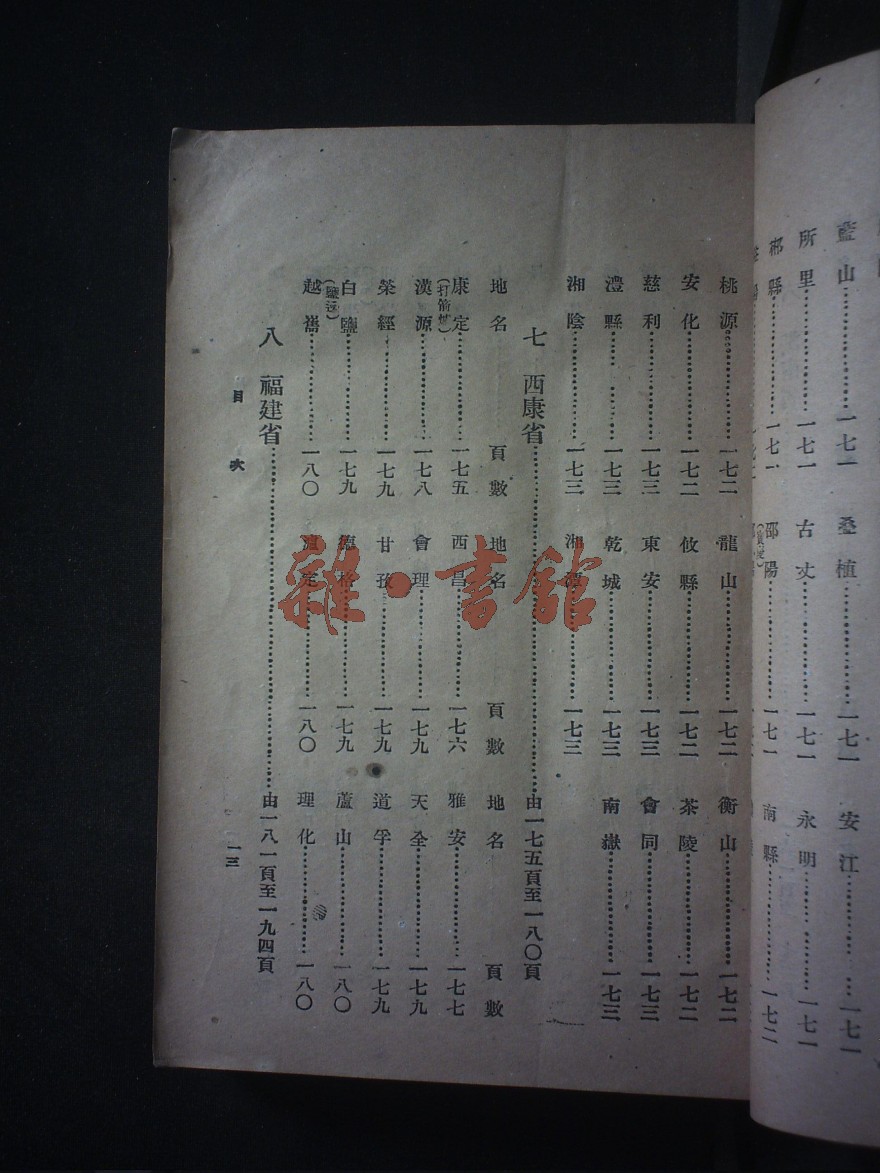 藍山……一七一 桑植……一七一 安江……一七一
所里……一七一 古丈……一七一 永明……一七一
郴縣……一七一 邵陽……一七一 南縣……一七二
桃源……一七二 龍山……一七二 衡山……一七二
安化……一七二 攸縣……一七二 茶陵……一七二
慈利……一七三 東安……一七三 會同……一七三
澧縣……一七三 乾城……一七三 南嶽……一七三
湘陰……一七三 湘潭……一七三
七 西康省……由一七五頁至一八〇頁
地名 頁數 地名 頁數 地名 頁數
康定(打箭爐)……一七五 西昌……一七六 雅安……一七七
漢源……一七八 會理……一七九 天全……一七九
滎經……一七九 甘孜……一七九 道孚……一七九
白鹽(鹽源)……一七九 德格……一七九 蘆山……一八〇
越嶲……一八〇 瀘定……一八〇 理化……一八〇
八 福建省……由一八一頁至一九四頁
目次
一三
雜·書館